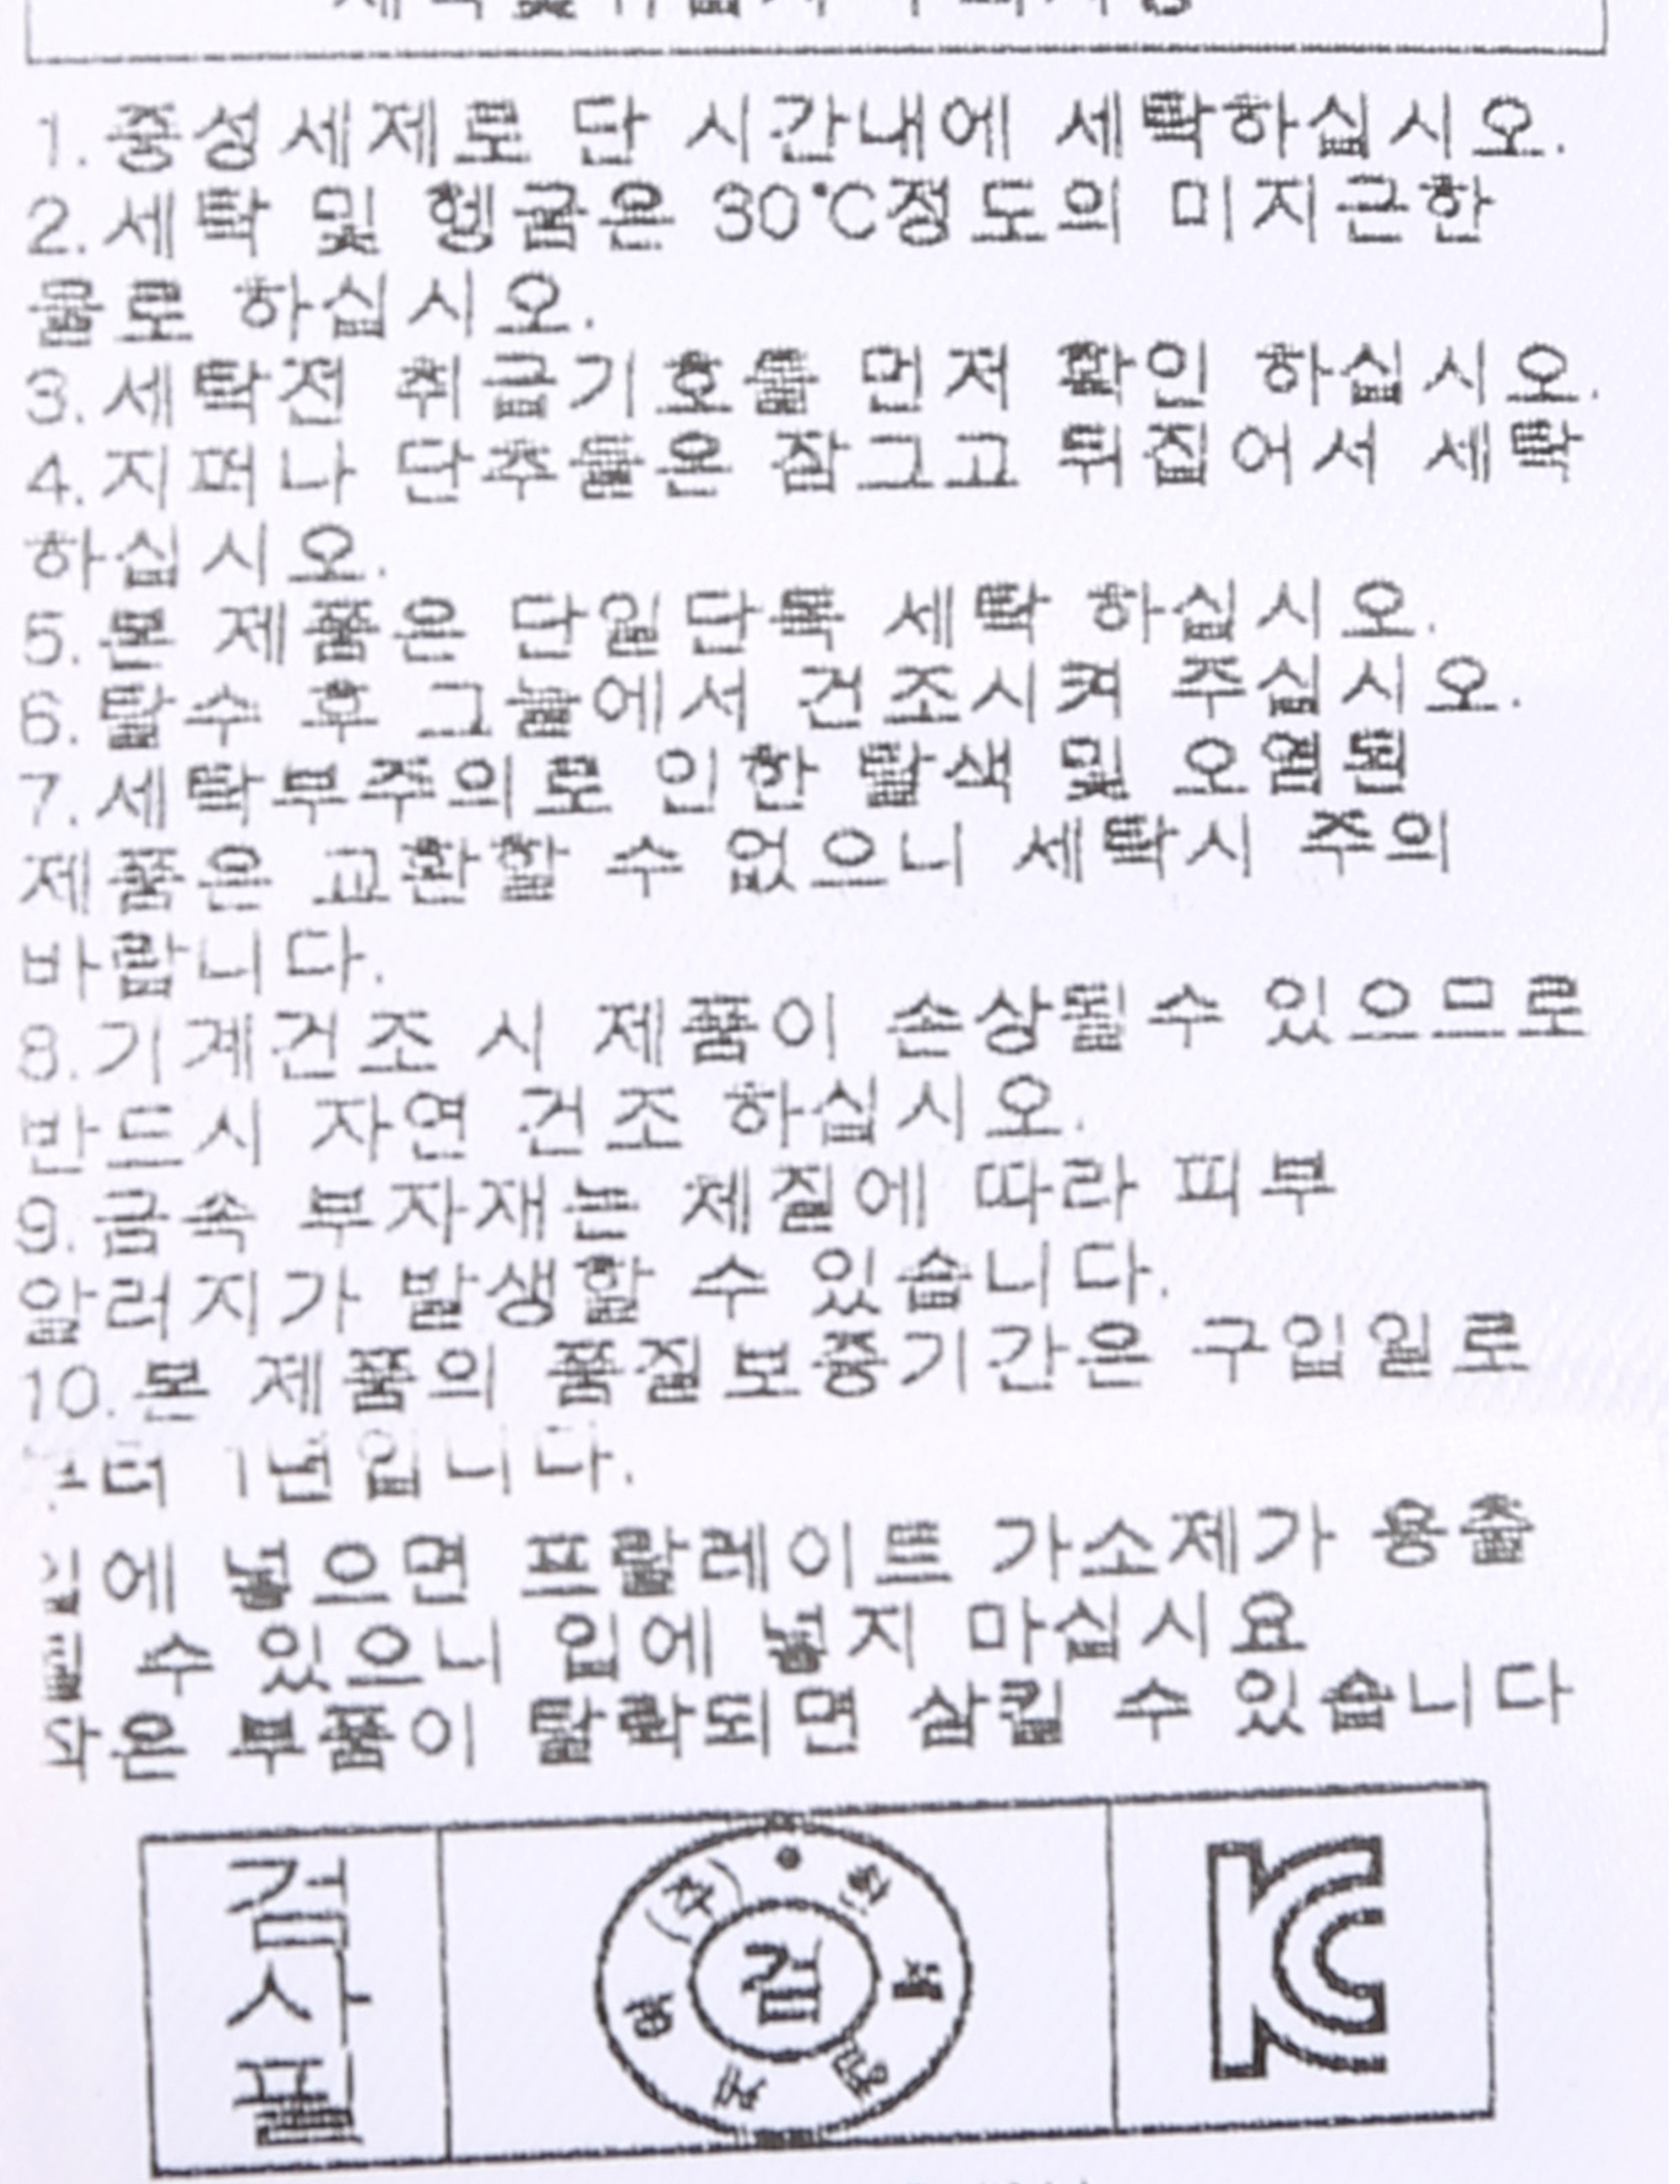 1.중성세제로 단 시간내에 세탁하십시오.
2.세탁 및 헹굼은 30℃정도의 미지근한
물로 하십시오.
3.세탁전 취급기호를 먼저 확인 하십시오.
4.지퍼나 단추들은 잠그고 뒤집어서 세탁
하십시오.
5.본 제품은 단일단독 세탁 하십시오.
6.탈수 후 그늘에서 건조시켜 주십시오.
7.세탁부주의로 인한 탈색 및 오염된
제품은 교환할 수 없으니 세탁시 주의
바랍니다.
8.기계건조 시 제품이 손상될수 있으므로
반드시 자연 건조 하십시오.
9.금속 부자재는 체질에 따라 피부
알러지가 발생할 수 있습니다.
10.본 제품의 품질보증기간은 구입일로
부터 1년입니다.
입에 넣으면 프탈레이트 가소제가 용출
될 수 있으니 입에 넣지 마십시요
작은 부품이 탈락되면 삼킬 수 있습니다
검사필
(주)
검
KC